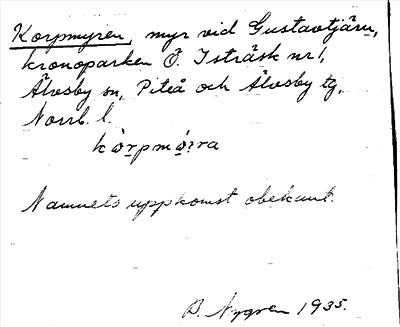 Korpmyren, myr vid Gustavtjärn,
kronoparken Ö. Isträsk nr 1,
Älvsby sn, Piteå och Älvsby tg,
Norrb. l.
Namnets uppkomst obekant.
B. Nygren 1935.